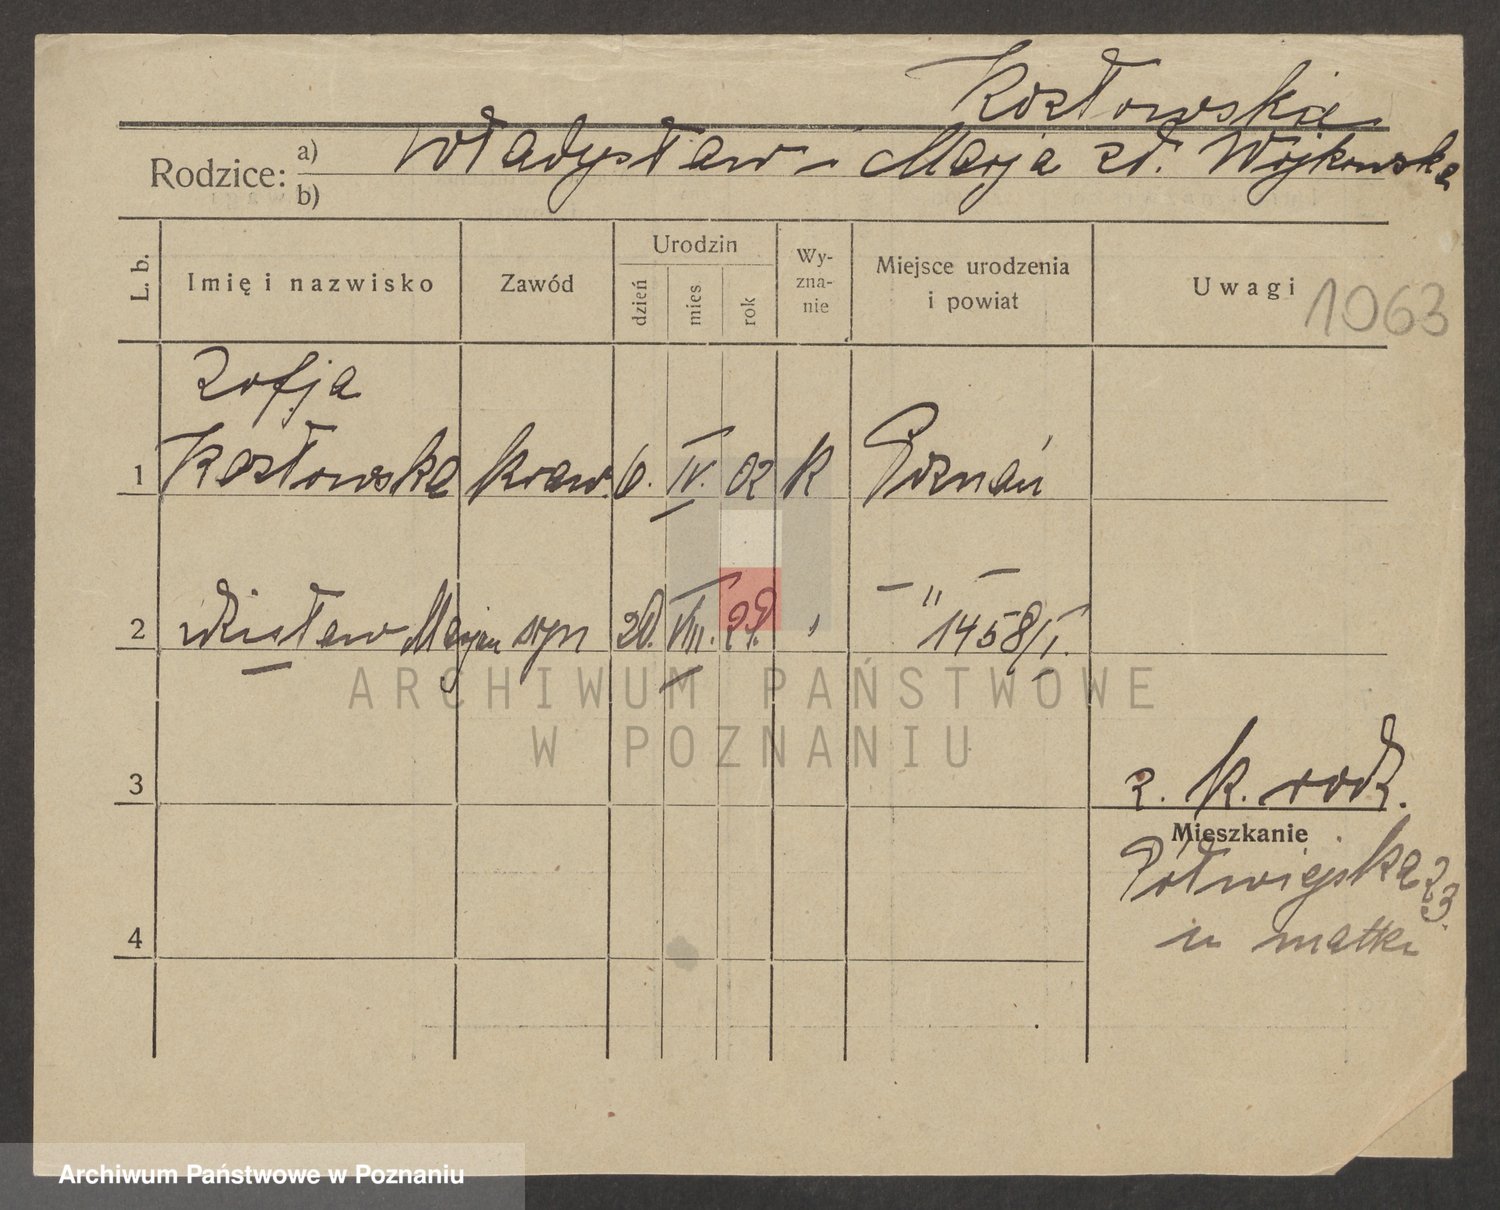 Kozłowska
Rodzice: a) b) Władysław i Marja zd. Wojkowska
L. b. Imię i nazwisko Zawód Urodzin dzień mies rok Wy-zna-nie Miejsce urodzenia i powiat Uwagi 1063
Zofja
1 Kozłowska kraw. 6. IV. 02 K Poznań
2 Wiesław Marjan syn 20. VIII. 29. " — " —
1458/I.
ARCHIWUM PAŃSTWOWE
W POZNANIU
3 z. k. rodz.
Mieszkanie
Półwiejska 23.
4 u matki
Archiwum Państwowe w Poznaniu